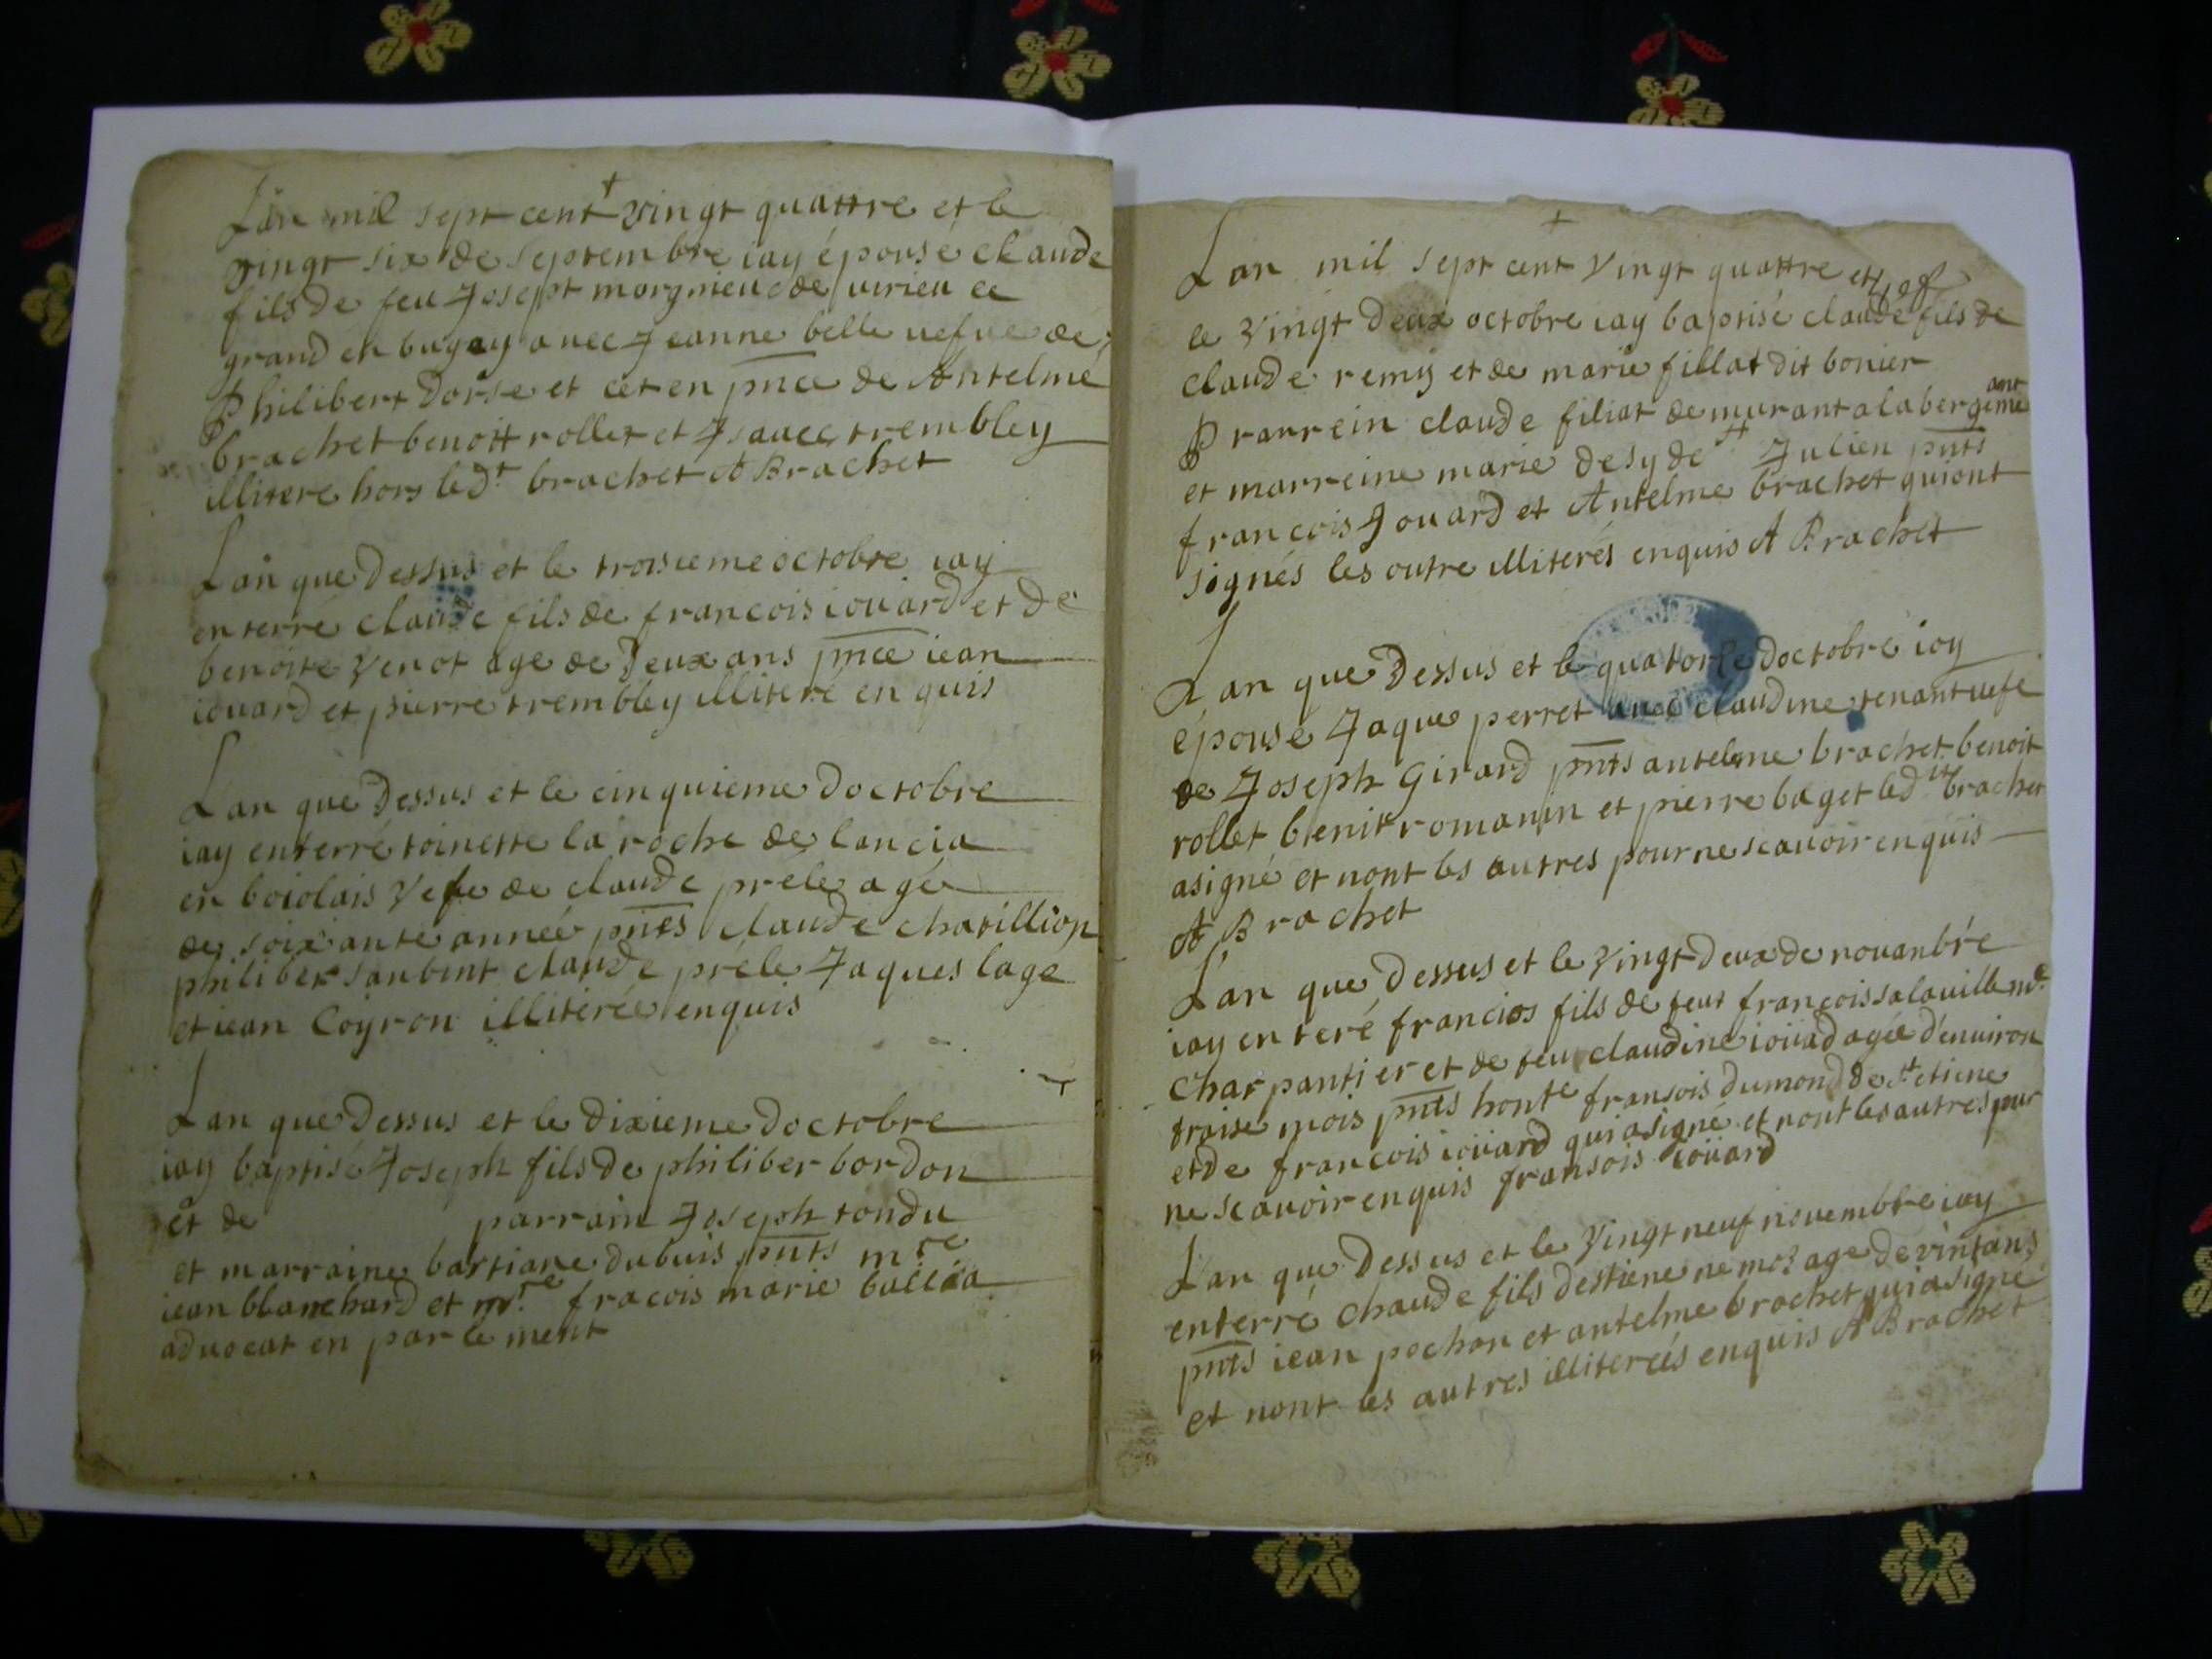 +
Lan mil sept cent vingt quattre et le
vingt six de septembre iay épousé claude
fils de feu Josept morgnieu de virieu ee
grand en bugey avec Jeanne belle uefue de
Philibert Dorse et cet en pnce de Antelme
brachet benoitt rollet et Isaacc trembley
illitere hors led.t brachet A Brachet
Lan que Dessus et le troisieme octobre iay
enterré claude fils de francois iouard et de
benoite venot age de Deux ans pnce iean
iouard et pierre trembley illiteré enquis
Lan que Dessus et le cinquieme Doctobre
iay enterré toinette la roche de lancia
en boiolais Vefe de claude préle agé
de soixante année pnts claude chatillion
philiber saubint claude préle Jaques lage
et iean Coyron illiterée enquis
Lan que Dessus et le Dixieme Doctobre
iay baptisé Joseph fils de philiber bordon
et de parrain Joseph tondu
et marraine bastiane dubuis pnts mre
iean blanchard et mre fracois marie
aduocat en parlement
+
Lan mil sept cent vingt quattre et
le vingt Deux octobre iay baptisé claude fils de
claude remy et de marie fillat dit bonier
Prarrein claude filiat de murant a la
et marreine marie desy de st Julien pnts
francois Jouard et Antelme brachet qui ont
signés les outre illiterés enquis A Brachet
Lan que Dessus et le quatorze doctobre iay
épousé Jaque perret auec claudine tenant uefe
de Joseph Girard pnts antelme brachet benoit
rollet benit romanin et pierre baget led it brachet
a signé et nont les autres pour ne scauoir enquis
A Brachet
Lan que dessus et le vingt deux de nouanbre
iay enteré francios fils de feut francois salauille me
charpantier et de feu claudine iouad agée denuiron
traise mois pnts honte fransois dumond de st etiene
et de francois iouard qui a signé et nont les autres pour
ne scauoir enquis fransois iouard
Lan que Dessus et le vingt neuf novembre iay
enterré chaude fils destiene nemoz age de vint ans
pnts iean pochon et antelme brachet qui a signe
et nont les autres illiterés enquis A Brachet